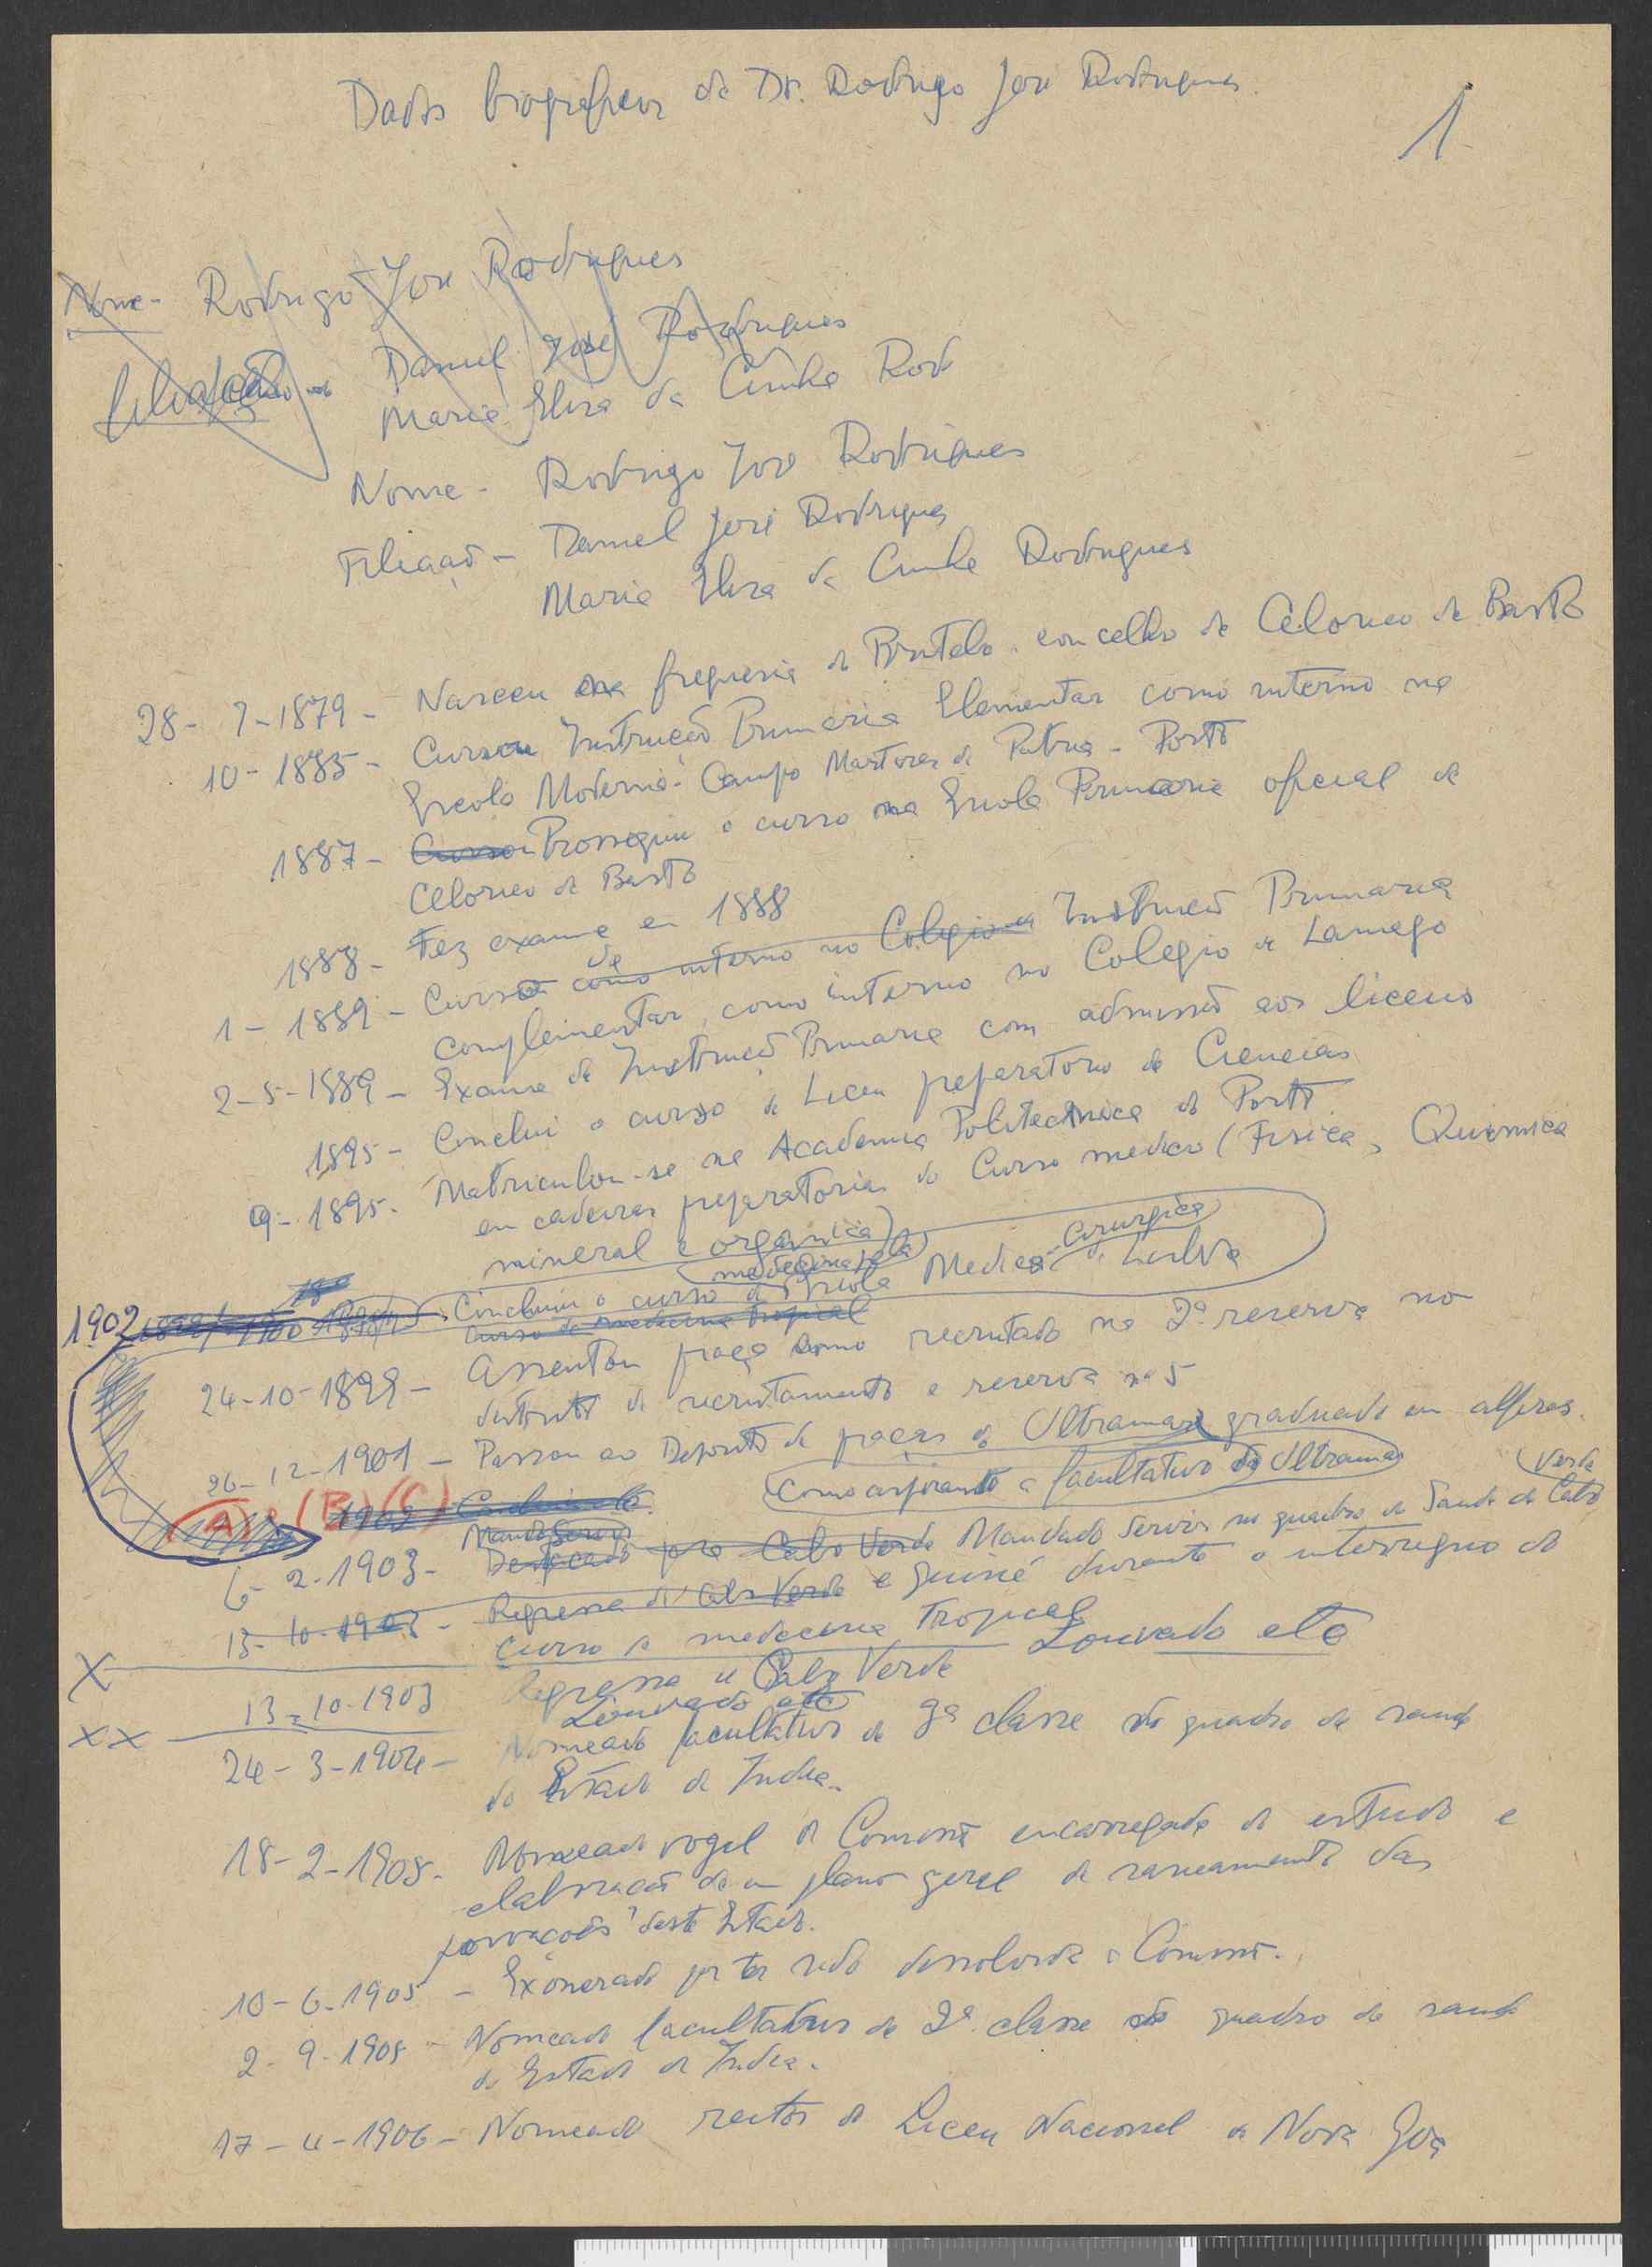 Dados biograficos do Dr. Rodrigo José Rodrigues
1
Nome - Rodrigo José Rodrigues
Filiação - Daniel José Rodrigues
Maria Elisa da Cunha Rod
Nome - Rodrigo José Rodrigues
Filiação - Daniel José Rodrigues
Maria Elisa da Cunha Rodrigues
28 - 7 - 1879 - Nasceu na freguesia de Britelo. concelho de Celorico de Basto
10 - 1885 - Cursou Instrução Primária Elementar como interno na
Escola Moderna - Campo Martires da Patria - Porto
1887 - Cursou Prosseguiu o curso na Escola Primaria oficial de
Celorico de Basto
1888 - Fez exame em 1888
1 - 1889 - Curso de como interno no Colegio Instrução Primaria
complementar, como interno no Colegio de Lamego
2 - 5 - 1889 - Exame de Instrução Primaria com admissão aos liceus
1895 - Conclui o curso de Liceu preparatorio de Ciencias
9 - 1895 - Matriculou-se na Academia Politecnica do Porto
em cadeiras preparatorias do Curso medico (Fisica, Quimica
mineral e organica)
1902 Concluiu o curso da Escola Medico-cirurgica de Lisboa
Curso de medicina tropical
24-10-1899 - Assentou praça como recrutado na 2ª reserva no
distrito de recrutamento e reserva nº 5
26-12-1901 - Passou ao Deposito de praças do Ultramar graduado em alferes.
como aspirante a facultativo do Ultramar
(A) e (B) (C) 1903
6-2-1903 - Destacado pra Cabo Verde Mandado Servir no quadro de Saude de Cabo Verde
13-10-1903 - Regressa de Cabo Verde e Guiné durante o interregno do
curso de medicina Tropical Louvado etc
X
13-10-1903 Regressa de Cabo Verde
Louvado etc
XX
24-3-1904 - Nomeado facultativo de 3ª classe do quadro de saude
do Estado da India.
18-2-1905 - Nomeado vogal da Comissão encarregada do estudo e
elaboração de um plano geral de saneamento das
povoações deste Estado.
10-6-1905 - Exonerado por ter sido dissolvida a Comissão.
2-9-1905 - Nomeado facultativo de 2ª classe do quadro de saude
do Estado da India.
17-4-1906 - Nomeado reitor do Liceu Nacional de Nova Goa